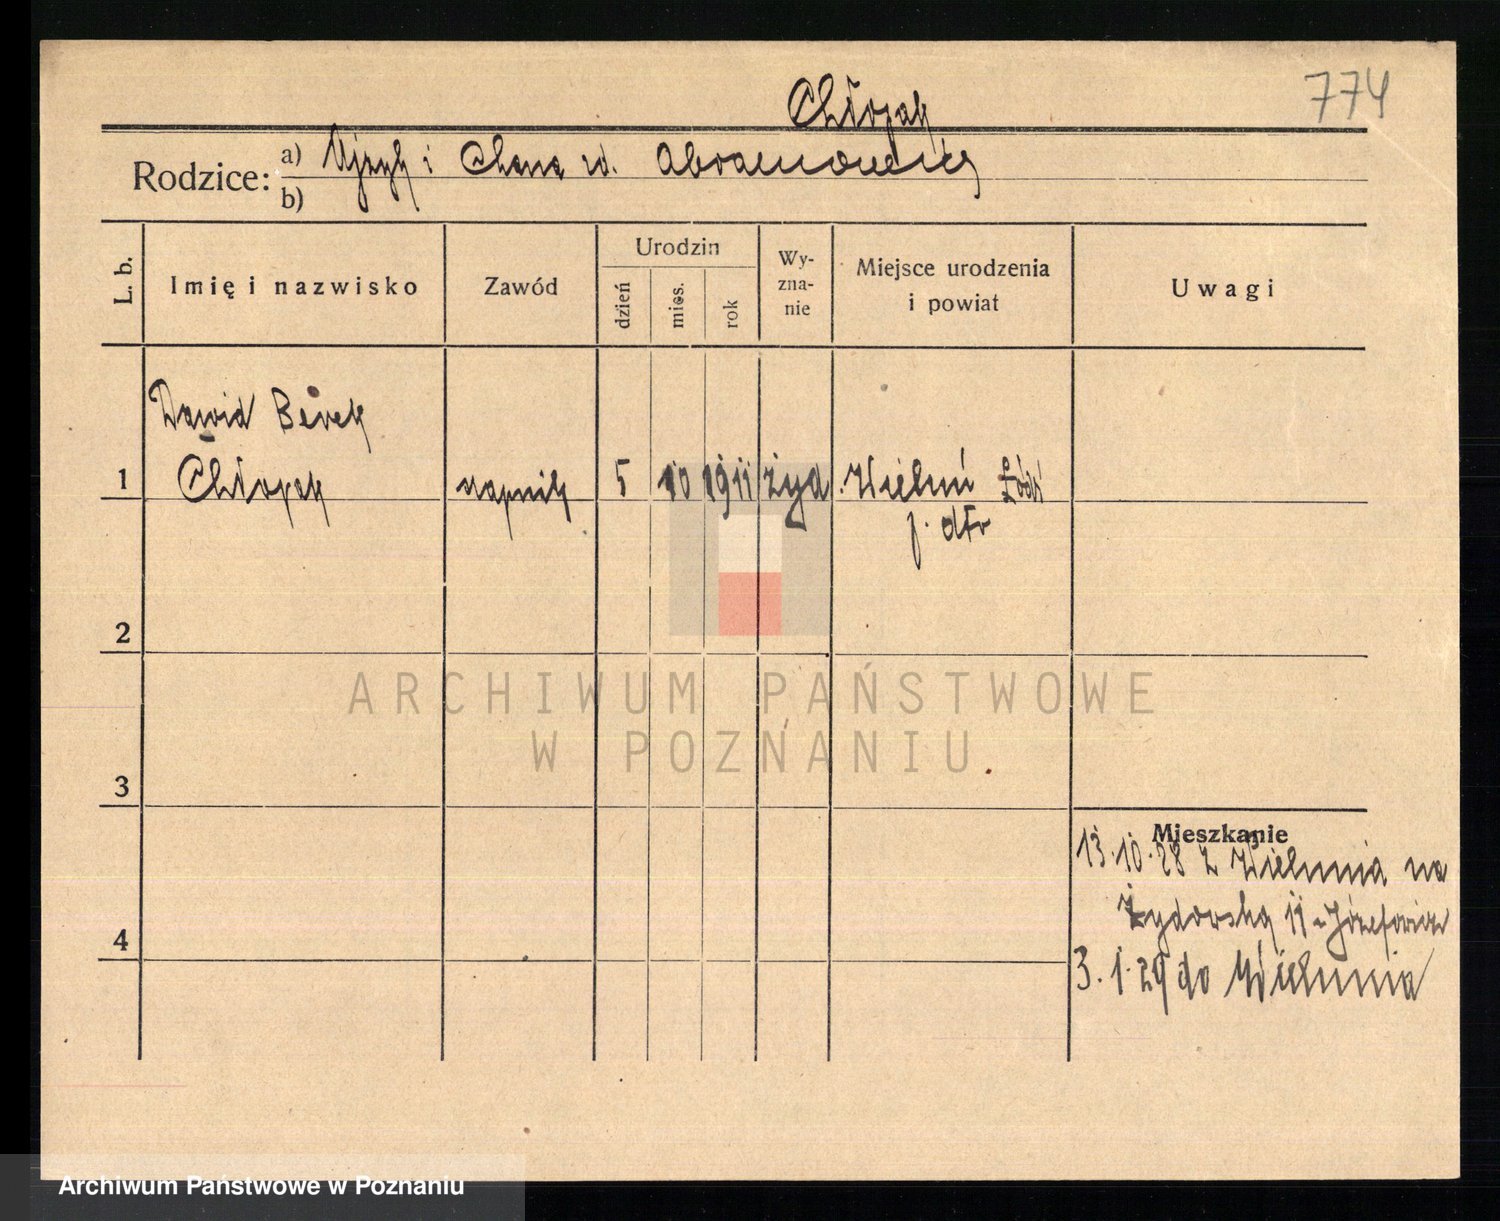 774
Chłopak
Rodzice: a) Ajzyk i Chana zd. Abramowicz
b)
L. b.
Imię i nazwisko
Zawód
Urodzin
dzień
mies.
rok
Wy-
zna-
nie
Miejsce urodzenia
i powiat
Uwagi
Dawid Berek
1 Chłopak 5 10 1911 żyd Wieluń Łódź
2
3
4
Mieszkanie
13.10.28 z Wielunia na
Żydowską 11 - Józefowicz
3.1.29 do Wielunia
ARCHIWUM PAŃSTWOWE
W POZNANIU
Archiwum Państwowe w Poznaniu